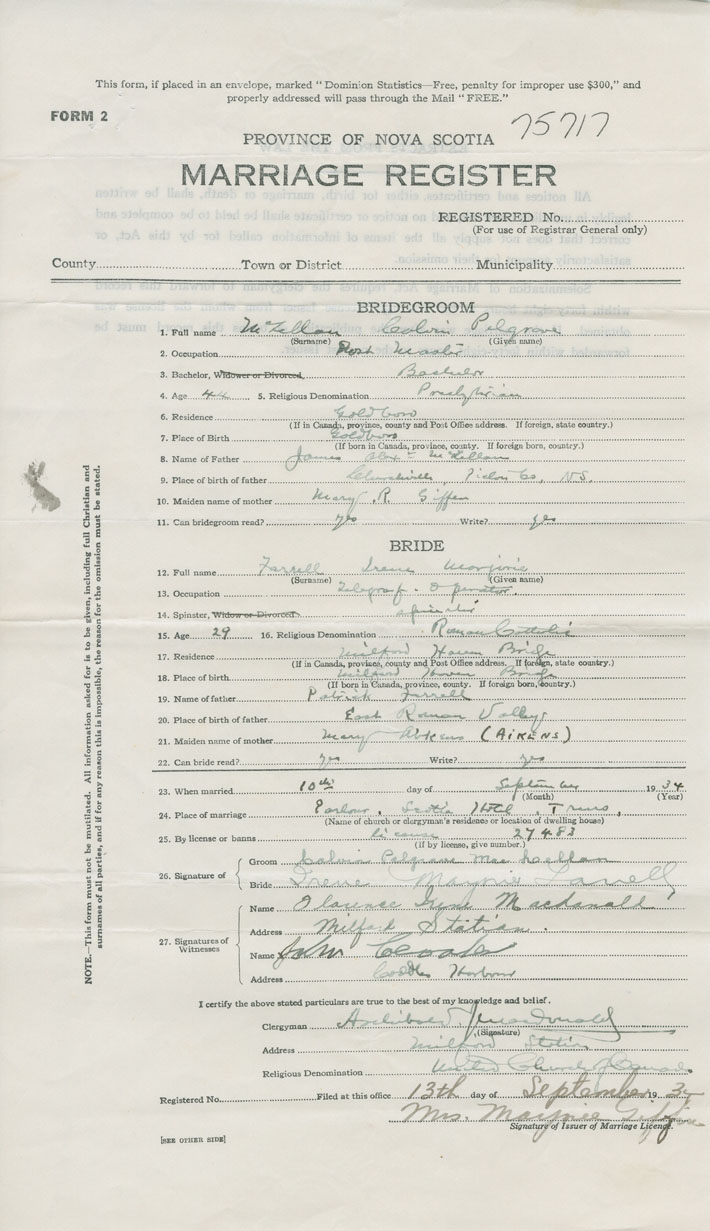 This form, if placed in an envelope, marked “ Dominion Statistics—Free, penalty for improper use $300,” and
properly addressed will pass through the Mail “ FREE.”
FORM 2
75717
PROVINCE OF NOVA SCOTIA
MARRIAGE REGISTER
REGISTERED No.
(For use of Registrar General only)
County Town or District Municipality
BRIDEGROOM
1. Full name McLellan Calvin Pelgrave
(Surname) (Given name)
2. Occupation Post Master
3. Bachelor, Widower or Divorced Bachelor
4. Age 44 5. Religious Denomination Presbyterian
6. Residence Goldboro
(If in Canada, province, county and Post Office address. If foreign, state country.)
7. Place of Birth Goldboro
(If born in Canada, province, county. If foreign born, country.)
8. Name of Father James Alex McLellan
9. Place of birth of father Pictou Co, NS.
10. Maiden name of mother Mary R. Giffen
11. Can bridegroom read? yes Write? yes
BRIDE
12. Full name Farrell Irene Marjorie
(Surname) (Given name)
13. Occupation Telegraph Operator
14. Spinster, Widow or Divorced spinster
15. Age 29 16. Religious Denomination Roman Catholic
17. Residence Milford Haven Bridge
(If in Canada, province, county and Post Office address. If foreign, state country.)
18. Place of birth Milford Haven Bridge
(If born in Canada, province, county. If foreign born, country.)
19. Name of father Patrick Farrell
20. Place of birth of father East Roman Valley
21. Maiden name of mother Mary Aikens (AIKENS)
22. Can bride read? yes Write? yes
23. When married 10th day of September 1934
(Month) (Year)
24. Place of marriage Parlour, Scotia Hotel, Truro,
(Name of church or clergyman's residence or location of dwelling house)
25. By license or banns license 27483
(if by license, give number.)
26. Signature of
Groom Calvin Pelgrave MacLellan
Bride Irene Marjorie Farrell
27. Signatures of Witnesses
Name Clarence Macdonald
Address Milford Station.
Name John
Address Coddles Harbour
I certify the above stated particulars are true to the best of my knowledge and belief.
Clergyman Archibald J MacDonald
(Signature)
Address Milford Station
Religious Denomination United Church of Canada
Registered No. Filed at this office 13th day of September 193
Mrs. Marjorie
Signature of Issuer of Marriage Licence.
[SEE OTHER SIDE]
NOTE.—This form must not be mutilated. All information asked for is to be given, including full Christian and
surnames of all parties, and if for any reason this is impossible, the reason for the omission must be stated.